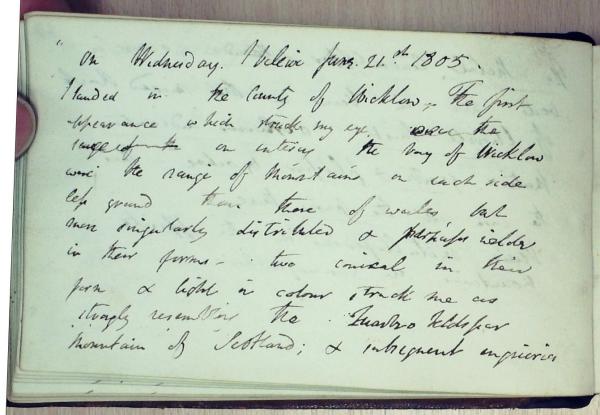 " On Wednesday. I beleive June. 21.st 1805.
I landed in the County of Wicklow, The first
appearance which struck my eye the
range of the on entering the bay of Wicklow
were the range of Mountains on each side
less grand than those of wales but
more singularly distributed & perhaps wilder
in their forms - two conical in their
form & light in colour struck me as
strongly resembling the Quartzo feldspar
Mountain of Scotland; & subsequent enquiries